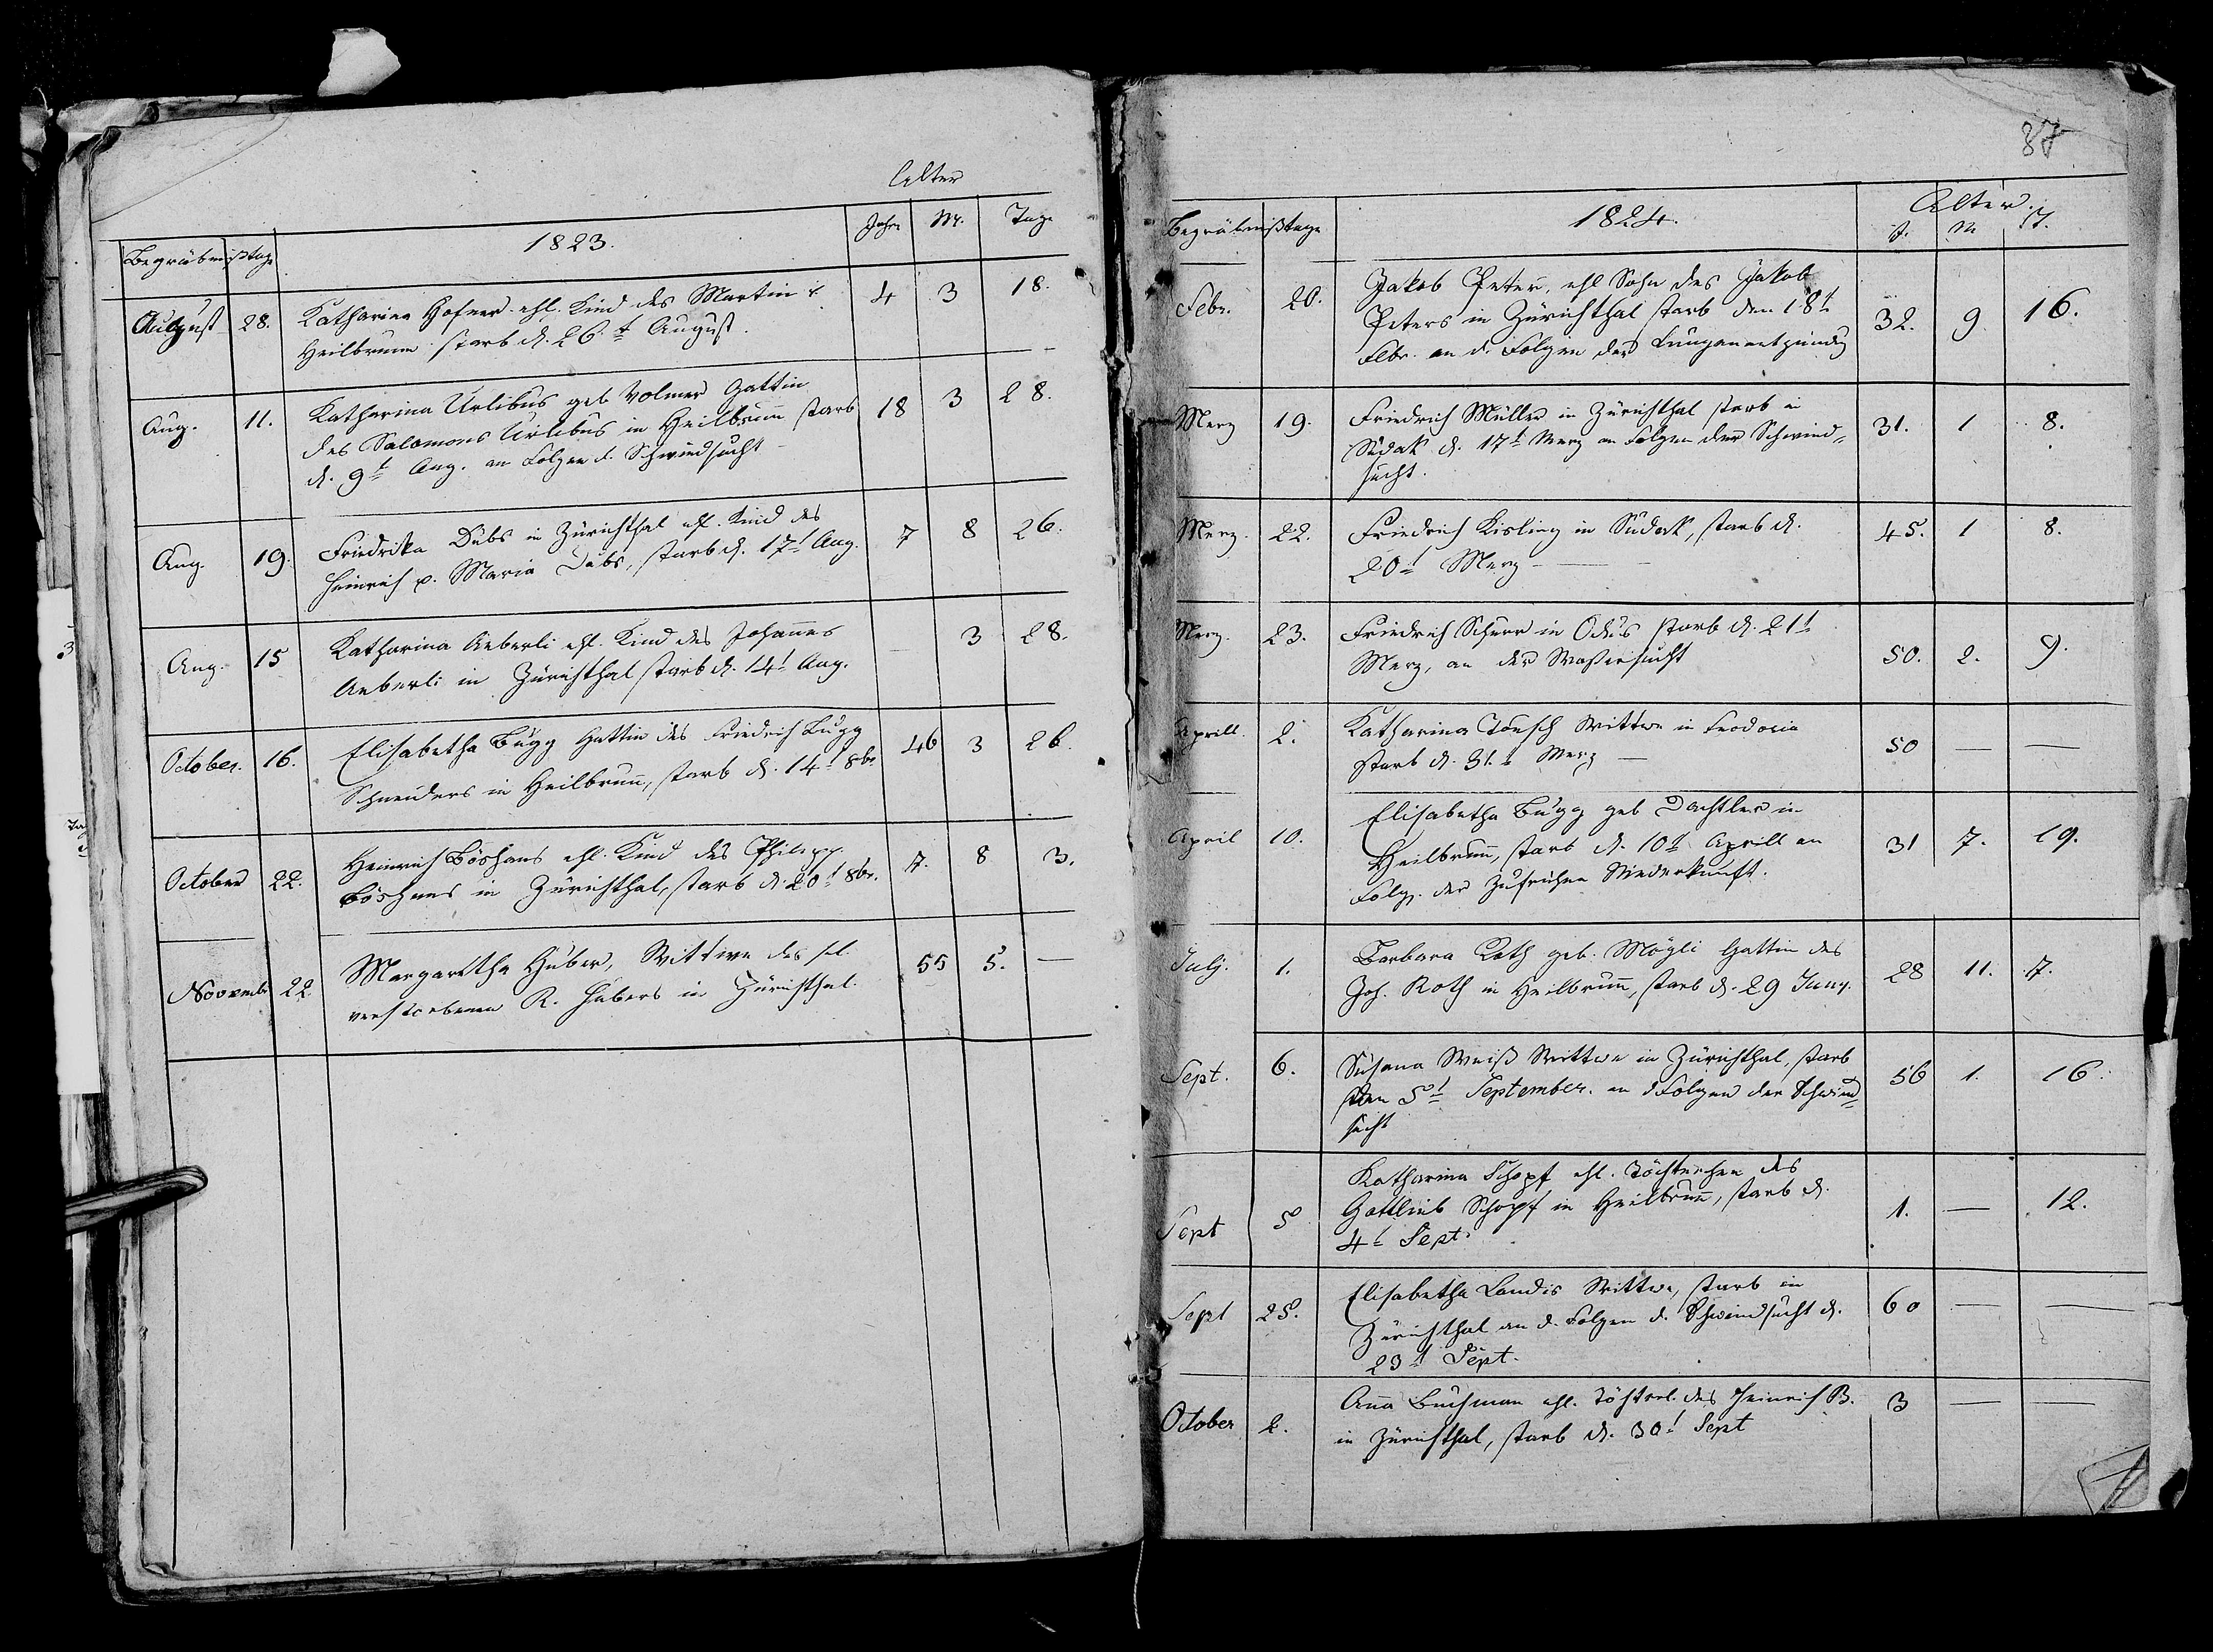 Alter
Begräbnißtage 1823. Jahre M. Tage
August 28. Katharina Hofner ehl. Kind des Martin
Heilbrunn starb d. 26.t August. 4 3 18.
Aug. 11. Katharina Urlibus geb Volmer Gattin
des Salomons Urlibus in Heilbrunn starb 18 3 28.
d. 9t Aug. an Folgen d. Schwindsucht
Aug. 19. Friedrika Dubs in Zürichthal ehl. Kind des
Heinrich u. Maria Dubs, starb d. 17t Aug. 7 8 26.
Aug. 15 Katharina Aeberli ehl. Kind des Johannes
Aeberli in Zürichthal starb d. 14t Aug. — 3 28.
October. 16. Elisabetha Bugg Gattin des Friedrich Bugg
Schneiders in Heilbrunn, starb d. 14t 8br 46 3 26.
October 22. Heinrich Böshans ehl. Kind des Philipp
Böshans in Zürichthal, starb d. 20t 8br. 7. 8 3.
Novembr 22. Margaretha Huber, Wittwe des sel.
verstorbenen R. Hubers in Zürichthal. 55 5. —
37
Alter.
Begräbnißtage 1824. J. M T.
Febr. 20. Jakob Peter, ehl Sohn des Jakob
Peters in Zürichthal starb den 18t
Febr. an d. Folgen der Lungenentzündg 32. 9 16.
Merz 19. Friedrich Müller in Zürichthal starb in
Sudak d. 17t Merz an Folgen der Schwind-
sucht. 31. 1 8.
Merz. 22. Friedrich Kisling in Sudak, starb d.
20t Merz — 45. 1 8.
Merz. 23. Friedrich Scherr in Odus starb d. 21t
Merz, an der Wassersucht 50. 2. 9.
Aprill. 2. Katharina Tensch Wittwe in Feodosia
starb d. 31.t Merz — 50 — —
April 10. Elisabetha Bugg geb Dachtler in
Heilbrunn, starb d. 10t Aprill an
Folg. der zufrühen Niederkunft. 31 7. 19.
July. 1. Barbara Roth geb. Mögli Gattin des
Joh. Roth in Heilbrunn, starb d. 29 Juny. 28 11. 7.
Sept. 6. Susana Weiß Wittwe in Zürichthal, starb
den 5t September. an d Folgen der Schwind-
sucht 56 1. 16.
Sept 5 Katharina Schopf ehl. Töchterchen des
Gottlieb Schopf in Heilbrunn, starb d.
4t Sept. 1. — 12.
Sept 25. Elisabetha Landis Wittwe, starb in
Zürichthal an d. Folgen d. Schwindsucht d.
23t Sept. 60 — —
October 2. Anna Buchman ehl. Töchterl. des Heinrich B.
in Zürichthal, starb d. 30t Sept 3 — —